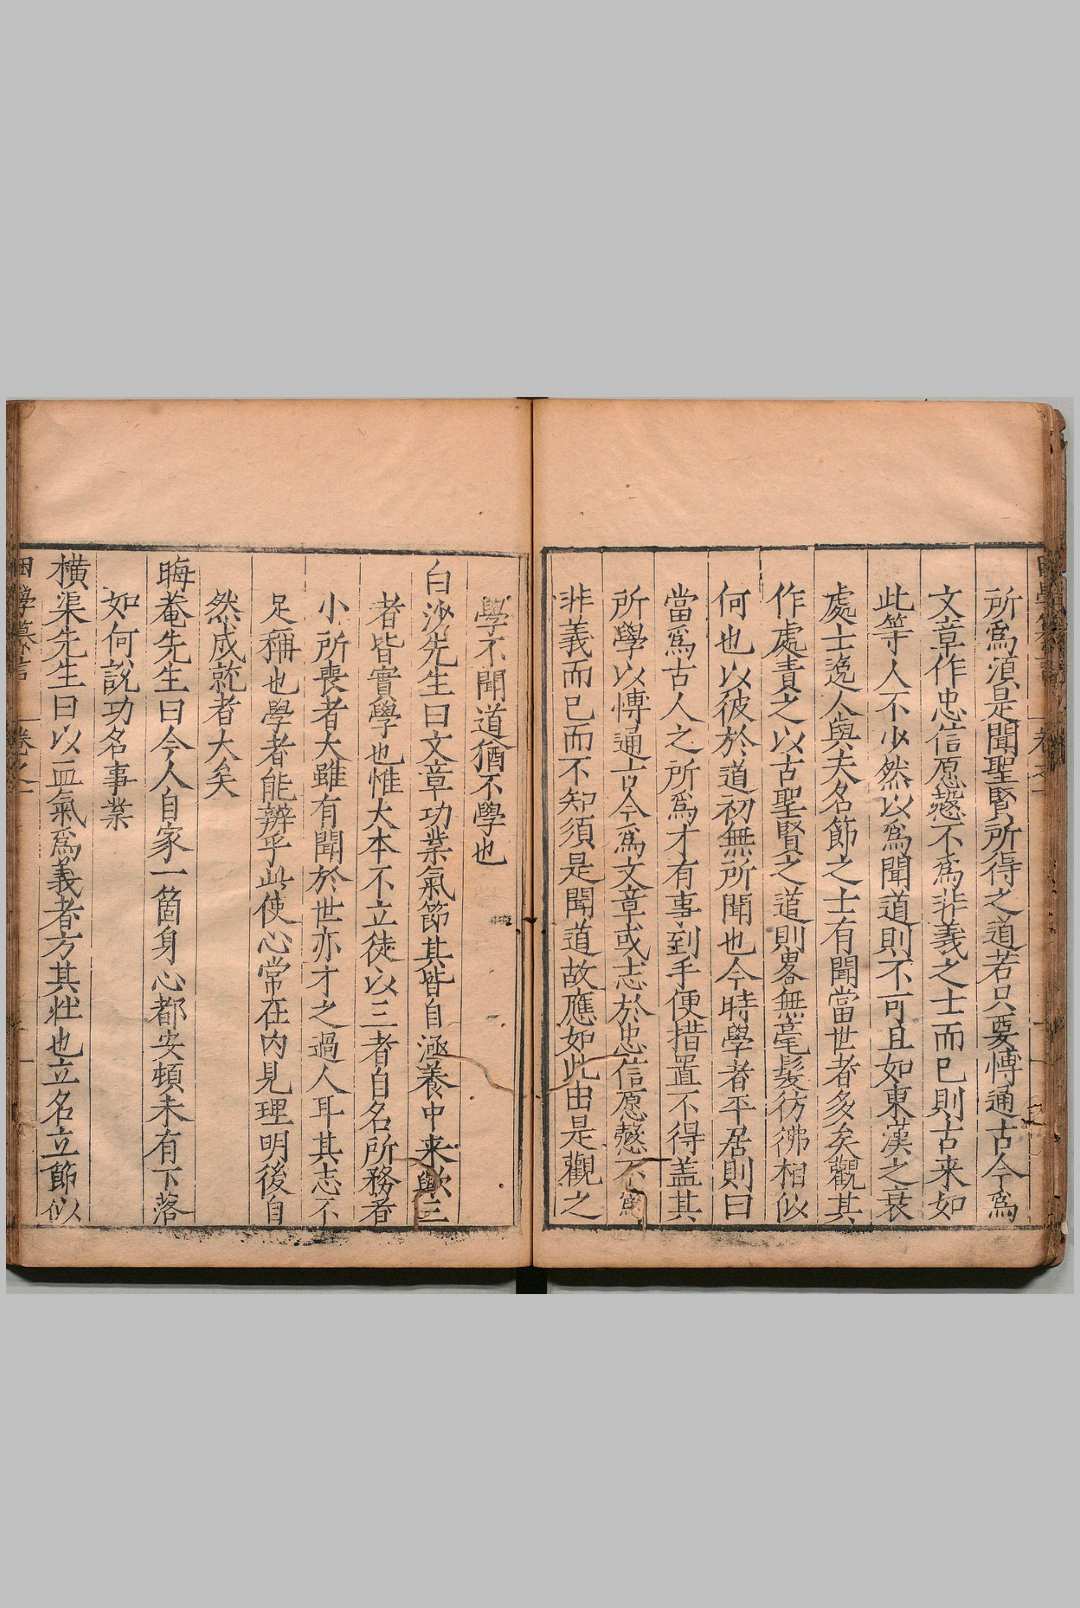 所爲須是聞聖賢所得之道若只要博通古今爲
文章作忠信愿慤不爲非義之士而已則古来如
此等人不少然以爲聞道則不可且如東漢之衰
處士逸人與夫名節之士有聞當世者多矣觀其
作處責之以古聖賢之道則畧無毫髮彷彿相似
何也以彼於道初無所聞也今時學者平居則曰
當爲古人之所爲才有事到手便措置不得盖其
所學以博通古今爲文章或志於忠信愿慤不爲
非義而已而不知須是聞道故應如此由是觀之
學不聞道猶不學也
白沙先生曰文章功業氣節其皆自涵養中来歟三
者皆實學也惟大本不立徒以三者自名所務者
小所喪者大雖有聞於世亦才之過人耳其志不
足稱也學者能辨乎此使心常在內見理明後自
然成就者大矣
晦菴先生曰今人自家一箇身心都安頓未有下落
如何說功名事業
橫渠先生曰以血氣爲義者方其壯也立名立節似
卷之一